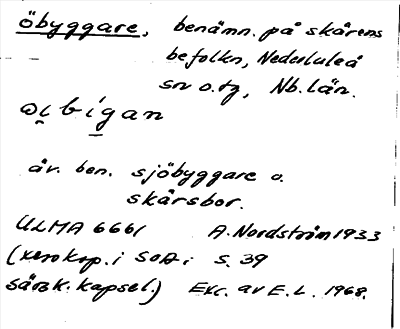 öbyggare, benämn. på skårens
befolkn, Nederluleå
sn o.tg, Nb. län.
äv. ben. sjöbyggare o.
skårsbor.
ULMA 6661 A. Nordström 1933
(xerokop. i SOA i S. 39
särsk. kapsel.) Exc. av E.L. 1968.